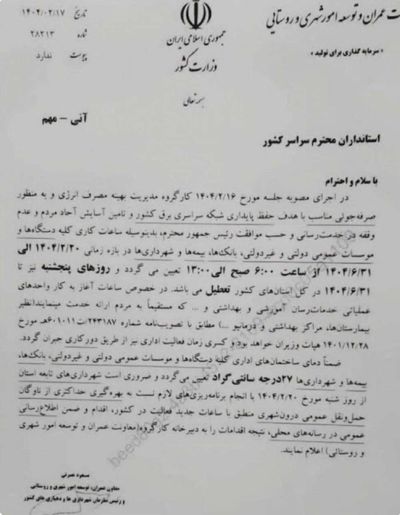 ت عمران و توسعه امور شهری و روستایی
« سرمایه گذاری برای تولید »
جمهوری اسلامی ایران
وزارت کشور
بسمه تعالی
تاریخ ۱۴۰۴/۰۲/۱۷
شماره ۲۸۲۱۳
پیوست ندارد
آنی - مهم
استانداران محترم سراسر کشور
با سلام و احترام
در اجرای مصوبه جلسه مورخ ۱۴۰۴/۲/۱۶ کارگروه مدیریت بهینه مصرف انرژی و به منظور
صرفه‌جوئی مناسب با هدف حفظ پایداری شبکه سراسری برق کشور و تامین آسایش آحاد مردم و عدم
وقفه در خدمت‌رسانی و حسب موافقت رئیس جمهور محترم، بدینوسیله ساعات کاری کلیه دستگاه‌ها و
موسسات عمومی دولتی و غیردولتی، بانک‌ها، بیمه‌ها و شهرداری‌ها در بازه زمانی ۱۴۰۴/۲/۲۰ الی
۱۴۰۴/۶/۳۱ از ساعت ۶:۰۰ صبح الی ۱۳:۰۰ تعیین می گردد و روزهای پنجشنبه نیز تا
۱۴۰۴/۶/۳۱ در کل استان‌های کشور تعطیل می باشد. در خصوص ساعات آغاز به کار واحدهای
عملیاتی خدمات‌رسان آموزشی و بهداشتی و ... که مستقیماً به مردم ارائه خدمت مینمایند(نظیر
بیمارستان‌ها، مراکز بهداشتی و درمانی و ...) مطابق با تصویب‌نامه شماره ۲۴۳۱۸۷/ت۶۰۱۰۱۱هـ مورخ
۱۴۰۱/۱۲/۲۸ هیات وزیران خواهد بود و کسری زمان فعالیت اداری نیز از طریق دورکاری جبران گردد.
ضمناً دمای ساختمان‌های اداری کلیه دستگاه‌ها و موسسات عمومی دولتی و غیردولتی، بانک‌ها،
بیمه‌ها و شهرداری‌ها ۲۷درجه سانتی‌گراد تعیین می‌گردد و ضروری است شهرداری‌های تابعه استان
از روز شنبه مورخ ۱۴۰۴/۲/۲۰ با انجام برنامه‌ریزی‌های لازم نسبت به بهره‌گیری حداکثری از ناوگان
حمل‌ونقل عمومی درون‌شهری منطبق با ساعات جدید فعالیت در کشور، اقدام و ضمن اطلاع‌رسانی
عمومی در رسانه‌های محلی، نتیجه اقدامات را به دبیرخانه کارگروه(معاونت عمران و توسعه امور شهری
و روستائی) اعلام نمایند.
مسعود نصرتی
معاون عمران، توسعه امور شهری و روستایی
و رئیس سازمان شهرداری ها و دهیاری های کشور